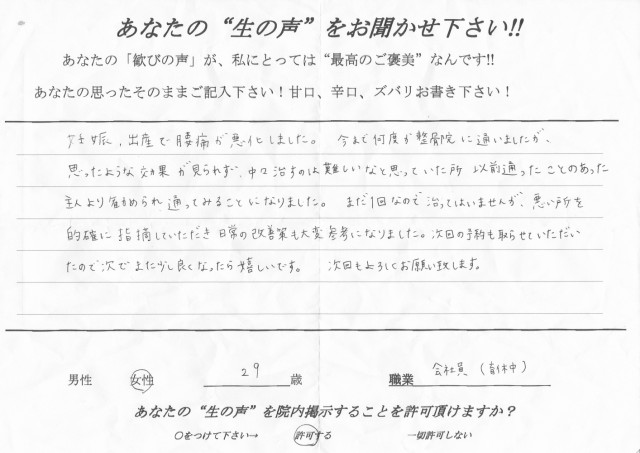 あなたの“生の声”をお聞かせ下さい!!
あなたの「歓びの声」が、私にとっては“最高のご褒美”なんです!!
あなたの思ったそのままご記入下さい！甘口、辛口、ズバリお書き下さい！
妊娠，出産で腰痛が悪化しました。 今まで何度か整骨院に通いましたが、
思ったような効果が見られず、中々治すのは難しいなと思っていた所 以前通ったことのあった
主人より勧められ、通ってみることになりました。 まだ1回なので治ってはいませんが、悪い所を
的確に指摘していただき 日常の改善策も大変参考になりました。次回の予約も取らせていただい
たので次でまた少し良くなったら嬉しいです。 次回もよろしくお願い致します。
男性 女性 29 歳 職業 会社員（育休中）
あなたの“生の声”を院内掲示することを許可頂けますか？
○をつけて下さい→ 許可する 一切許可しない